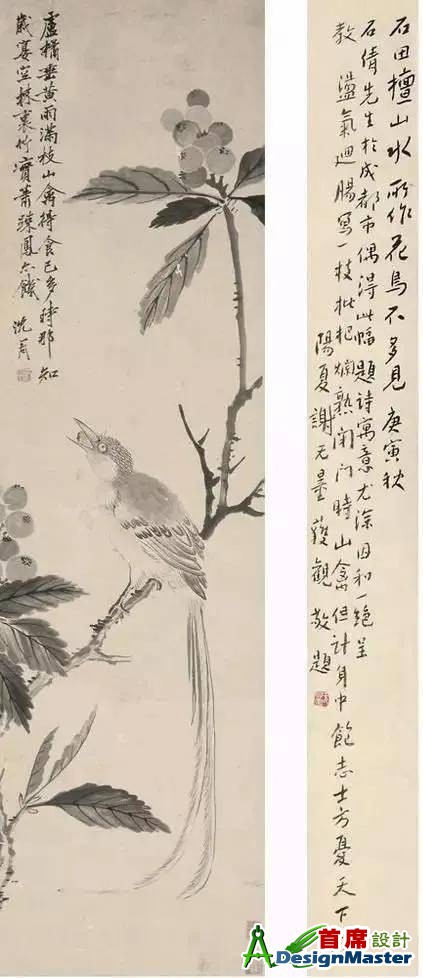 石田擅山水所作花鳥不多見庚寅秋
石倩先生於成都市偶得此幅題詩寓意尤深因和一絕呈
教盪氣迴腸寫一枝枇杷爛熟閉門時山禽但計身中飽志士方憂天下
陽夏謝无量獲觀敬題
盧橘垂黃雨滿枝山禽得食已多時那知
歲宴空林裏竹實蕭疎鳳亦饑 沈周
首席設計
ADesignMaster